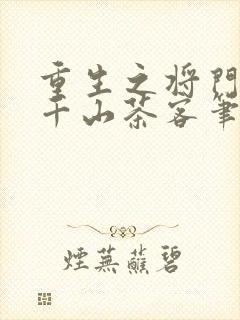 重生之将門
千山茶客筆
煙蕪蘸碧